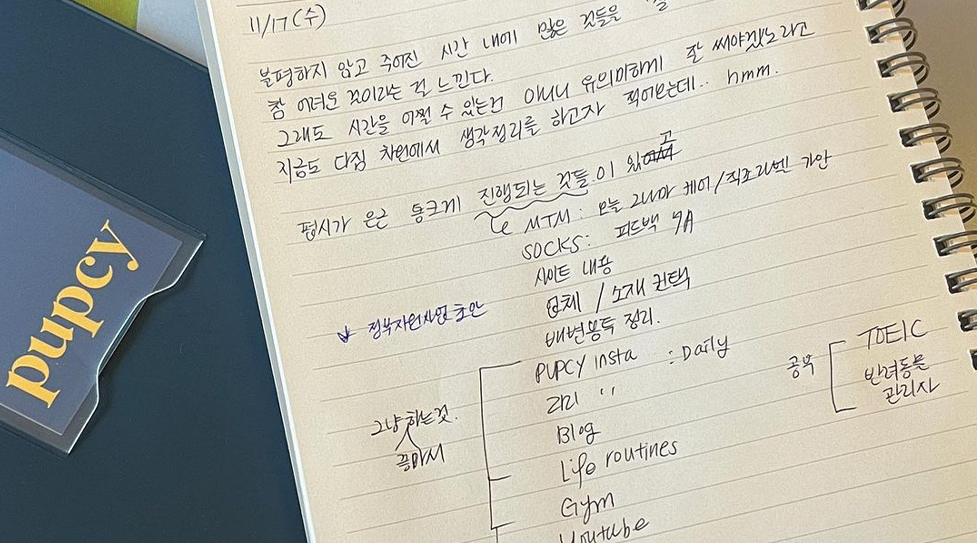 11/17(수)
불평하지 않고 주어진 시간 내에 많은 것들을
참 어려운 것이라는 걸 느낀다.
그래도 시간을 어쩔 수 있는건 아니니 유의미하게 잘 써야겠노라고
지금도 다짐 차원에서 생각정리를 하고자 적어보는데.. hmm.
고
펍시가 은근 등크게 진행되는 것들이 있
MTM: 오늘 케어/직조라벨 가안
SOCKS: 피드백
사이트 내용
업체 / 소재 컨택
↓ 정부지원사업 초안
배변봉투 정리.
pupcy
PUPCY insta : Daily
공부
TOEIC
라리 "
반려동물
관리사
그냥 하는것.
Blog
Life routines
Gym
Youtube